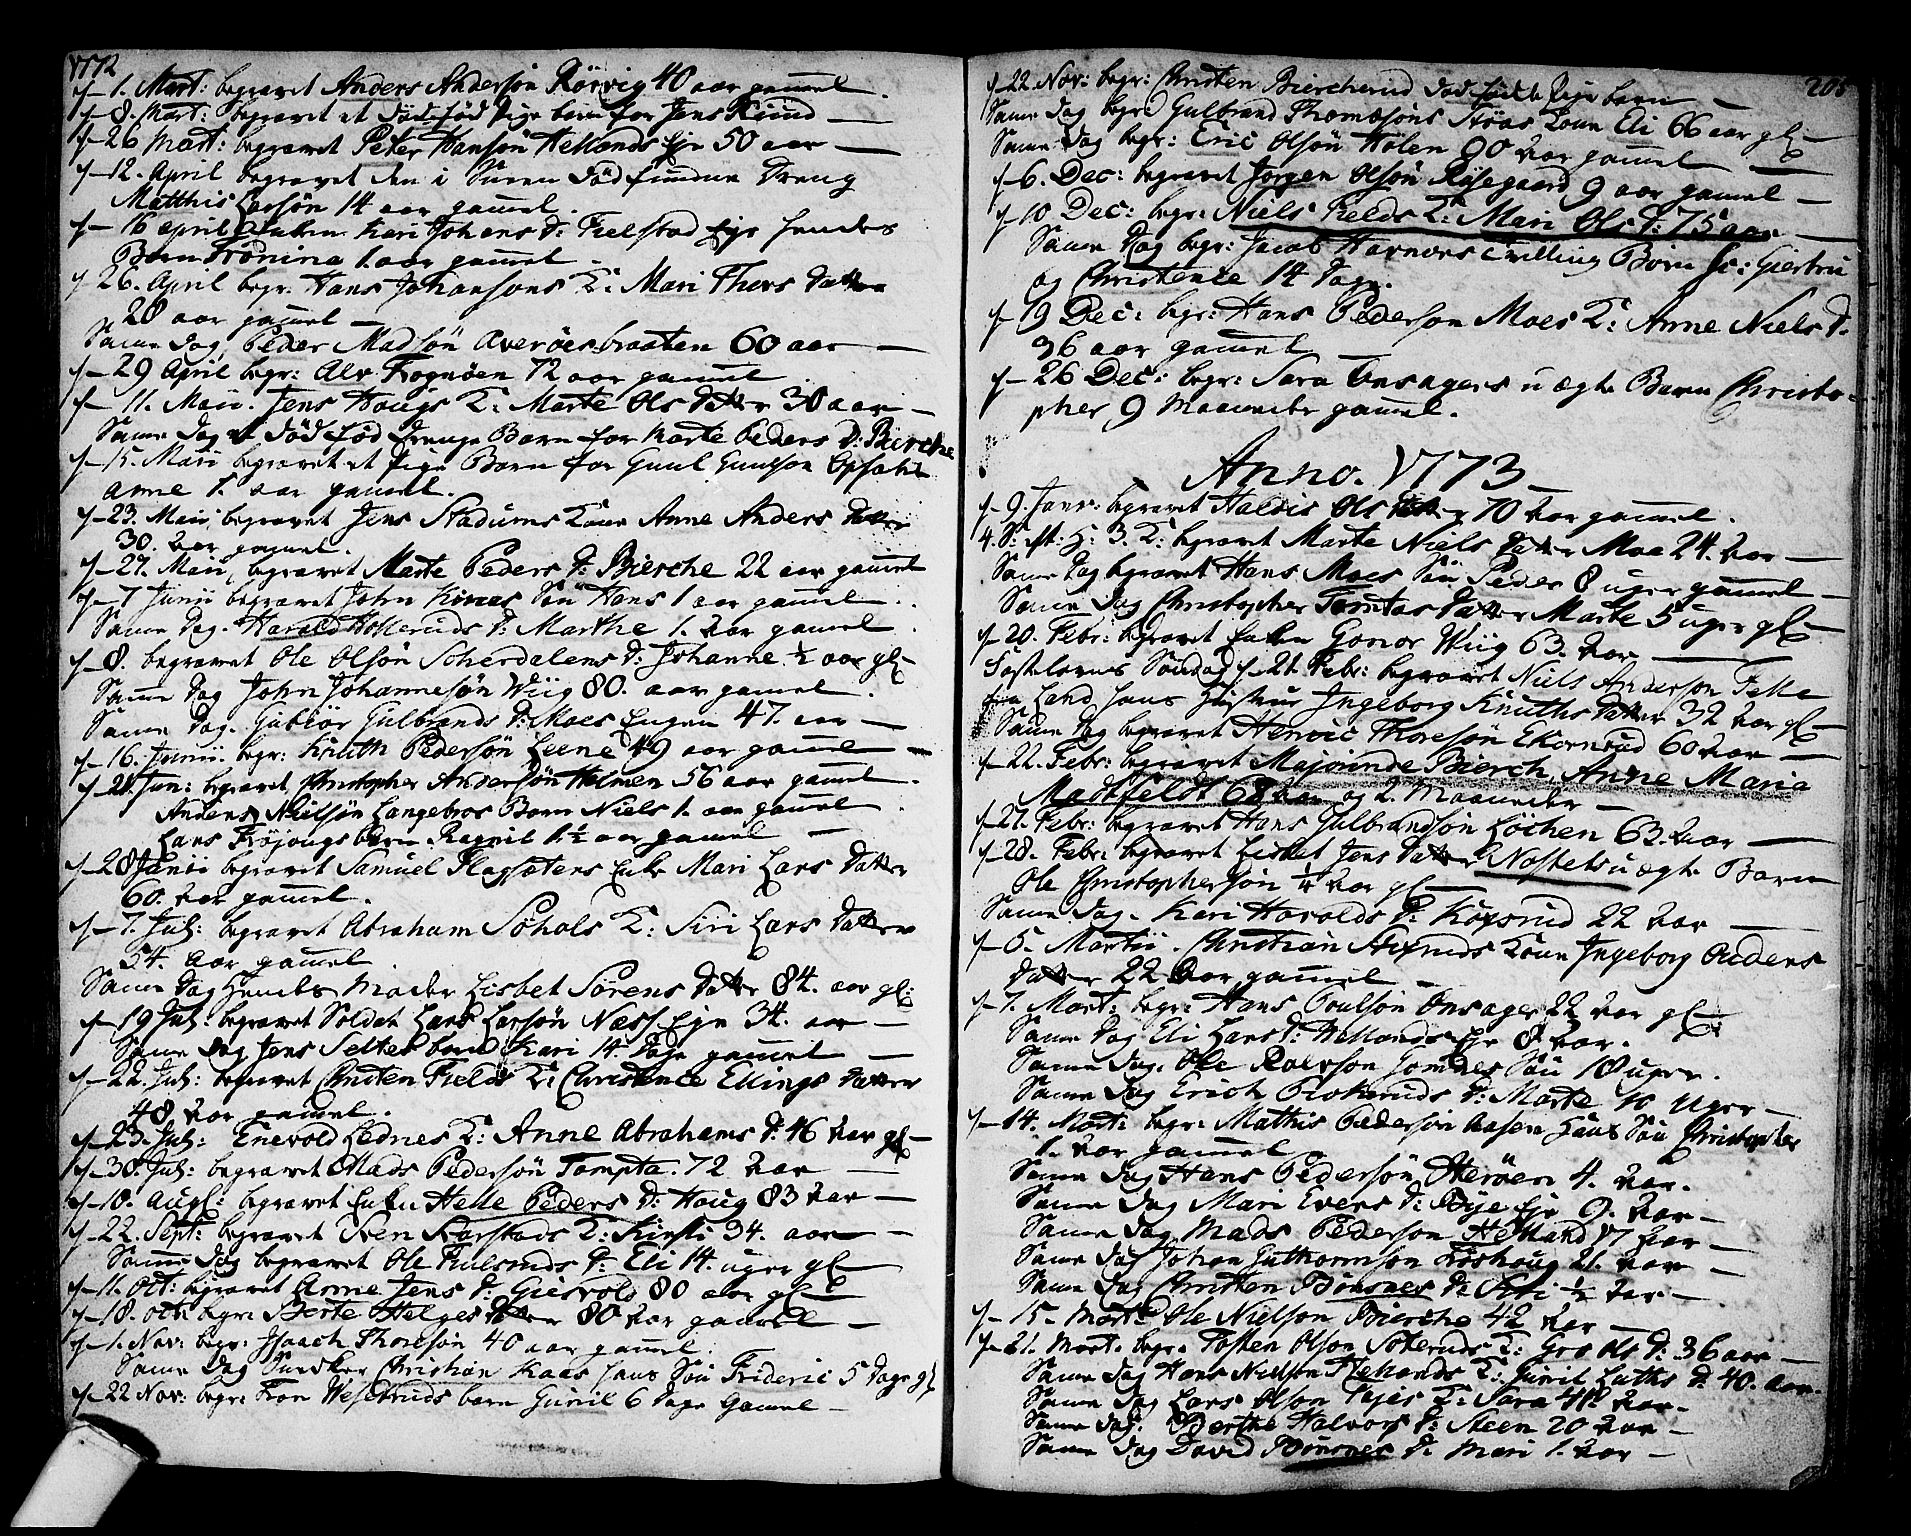 1772
1. Mart: begravet Anders Andersøn Rørvig 40 aar gamel.
8. Mart: begravet et dødfød Pige barn for Jens
26 Mart: begravet Peter Hansøn Hellands Eje 50 aar
12. April begravet den i død fundne Dreng
Matthis Larsøn 14 aar gamel
16 april Kari Johans D: Fielstad Eje hendes
Barn Frønina 1. aar gamel
26. April begr: Hans Johansons K: Mari Thors Datter
28 aar gamel
Samme Dag Peder Madsøn Averøesbraaten 60 aar
29 April begr: Alv Frognøen 72 aar gamel
11. Maii. Jens Hougs K: Marte Ols Datter 30 aar
Samme Dag et død fød Drenge Barn for Marte Peders D: Bierche
15. Maii begravet et Pige Barn for Gunsøn Opsahl
Anne 1. aar gamel.
23. Maii begravet Jens Stadums Kone Anne Anders Datter
30. aar gamel.
27. Maii begravet Marte Peders D: Bierche 22 aar gamel
7 Junii begravet John Søn Hans 1 aar gamel
Samme Dag. Harald Holleruds D: Marthe 1. aar gamel
8. begravet Ole Olsøn Scherdalens D: Johanne ½ aar gl
Samme Dag John Johannesøn Wiig 80. aar gamel.
Samme Dag. Gubiør Gulbrands D: Moes Eugen 47. aar
16. Junii. begr: Knuth Pedersøn Leene 49 aar gamel
21. Jun: begravet Christopher Andersøn Holmen 56 aar gamel
Anders Nielsøn Langebroe Barn Niels 1. aar gamel
Lars Frøjongs Barn Ragnil 1½ aar gamel
28 Junii begravet Samuel Flagsætens Enke Mari Lars Datter
60. aar gamel.
7. Jul: begravet Abraham Søhols K: Siri Lars Datter
54. aar gamel
Samme Dag Hendes Moder Lisbet Sørens Datter 84. aar gl:
19 Jul: begravet Soldat Lars Larsøn Næss Eje 34. aar
Samme Dag Jens Seltes barn Kari 14 Dage gamel
22. Jul: begravet Christen Fields K: Christence Ellings Datter
48 aar gamel.
23. Jul: Enevold Lednes K: Anne Abrahams D: 46 aar gl
30. Jul: begravet Mads Pedersøn Tompta. 72 aar
10. Augl: begravet Enken Helle Peders D: Houg 83 aar
22. Sept: begravet Sven Karstads K: Kirsti 34. aar
Samme Dag begravet Ole Fulsruds D: Eli 14. uger gl
11. Oct: begravet Anne Jens D: Giesvold 80 aar gl
18. Oct: begr: Berte Helges Datter 80 aar gamel
1. Nov: begr: Isaach Thoresøn 40 aar gamel.
Samme Dag Christian Kaas hans Søn Frideric 5 Dage gl
22 Nov: begr: Tron Weseteruds barn Gunil 6 Dage Gamel
205
22. Nov: begr: Christen Biercherud død fødde Pige barn
Samme Dag begr: Gulbrand Thomæsøns Kone Eli 66 aar gl
Samme Dag begr: Eric Olsøn Holen 80 aar gamel
6. Dec: begravet Jørgen Olsøn Risegaard 9 aar gamel
10 Dec: begr: Niels Fields K: Mari Ols D: 75 aar
Samme Dag begr: Jacob Havnors Tvilling Børn sc: Giertru
og Christence 14 Dage.
19 Dec: begr: Hans Pederson Moes K: Anne Niels D.
36 aar gamel
26 Dec: begr: Sara Onsagers uægte Barn Christo-
pher 9 Maaneder gamel.
Anno. 1773
9. Janv: begravet Halvis Ols Datter 70 aar gamel.
4. S: ft: H: 3. K: begravet Marte Niels Datter Moe 24. aar
Samme Dag begravet Hans Moes Søn Peder 8 uger gamel
Samme Dag Christopher Tomtas Datter Marte 5 uger gl
20. Febr: begravet Enken Gonor Wiig 63. aar
Fastelavns Søndag 21. Febr: begravet Niels Anderson Felle
Land hans Hustrue Ingeborg Knuths Datter 32 aar gl
Samme Dag begravet Thoresøn Ekornrud 60 aar
22. Febr: begravet Majorinde Bierch Anne Maria
Madtfeldt 68 aar og 2. Maaneder
27. Febr: begravet Hans Gulbrandsøn Løchen 63. aar
28. Febr: begravet Lisbet Jens Datter Nossets uægte Barn
Ole Christophersøn ¼ aar gl
Samme Dag. Kari Harolds D: Kopsrud 22 aar
5. Martii. Christian Kone Ingeborg Audens
Datter 22 aar gamel
7. Mart: begr: Hans Poulsøn Onsager 22 aar gl
Samme Dag Eli Lars D: Wellands Eje 8 aar.
Samme Dag. Ole Rolvson Gomnes Søn 18 uger.
Samme Dag Erich Plokeruds D: Marte 10 uger
14. Mart: begr: Mathis Pedersøn Aasen hans Søn Christopher
1. aar gamel
Samme Dag Hans Pedersøn Sterøen 4. aar.
Samme Dag Mari Evens D: Bye Eje 9. aar
Samme Dag Mads Pederson Helland 17 aar
Samme Dag Johan Guthormsøn Froshoug 21. aar
Samme Dag Christen Bønsnes D: Siri ½ aar
15. Marti Ole Nielson Bierche 42 aar
21. Mart. begr. Tosten Olson Soteruds K: Gro Ols D: 36 aar
Samme Dag Hans Nielson Hellands K: Guril Luths D: 40. aar.
Samme Dag Lars Olson K: Sara 48. aar
Samme Dag. Berthe Halvors D: Steen 20 aar
Samme Dag David Bønsnes D: Mari 1. aar